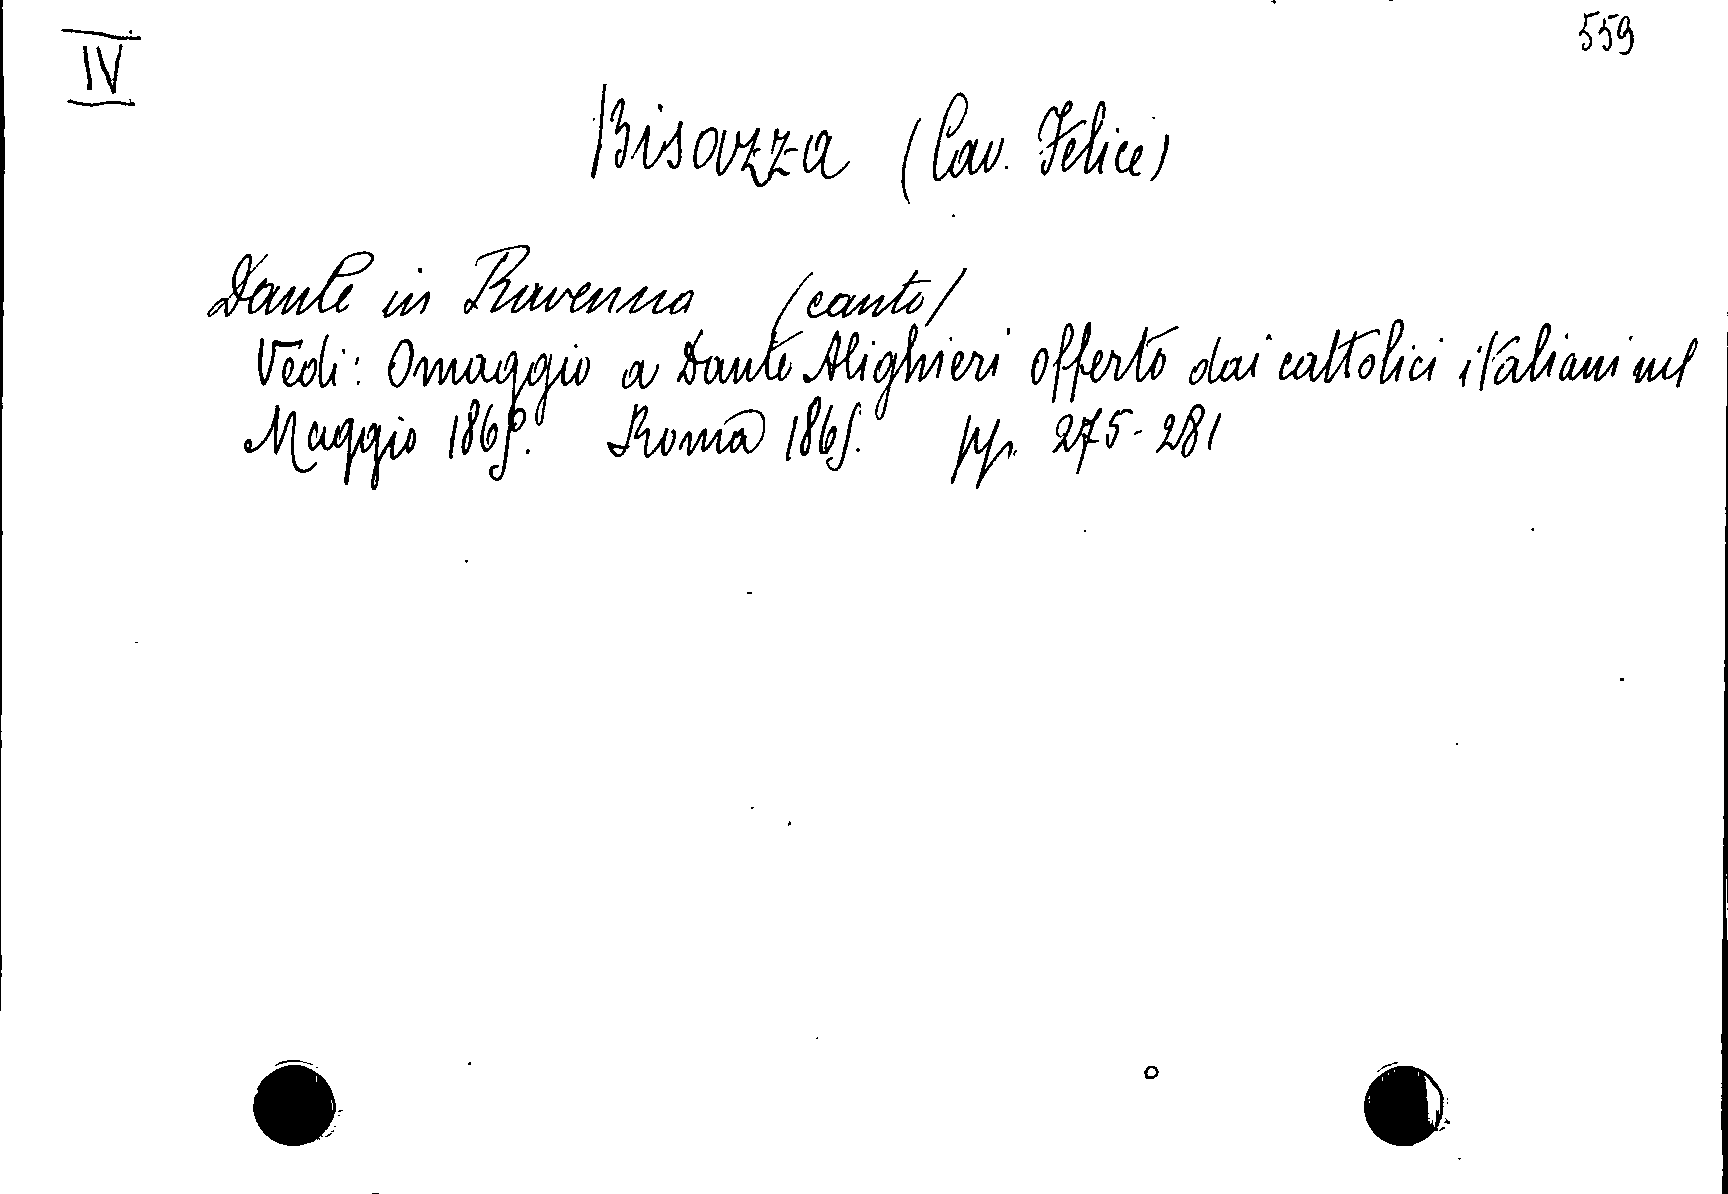 IV
559
Bisazza (Cav. Felice)
Dante in Ravenna (canto)
Vedi: Omaggio a Dante Alighieri offerto dai cattolici italiani nel
Maggio 1865. Roma 1865. pp. 275-281